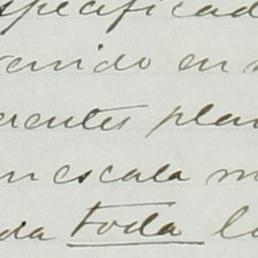 specificad
renido en
erentes plan
n escala m
da toda la